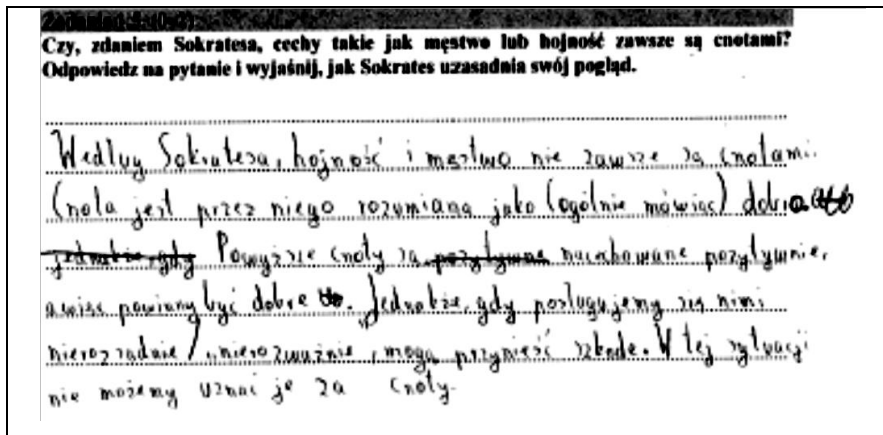 Czy, zdaniem Sokratesa, cechy takie jak męstwo lub hojność zawsze są cnotami?
Odpowiedz na pytanie i wyjaśnij, jak Sokrates uzasadnia swój pogląd.
Według Sokratesa, hojność i męstwo nie zawsze są cnotami.
Cnota jest przez niego rozumiana jako (ogólnie mówiąc) dobro.
Powyższe cnoty są nacechowane pozytywnie,
a więc powinny być dobre. Jednakże, gdy posługujemy się nimi
nierozsądnie / nierozważnie, mogą przynieść szkodę. W tej sytuacji
nie możemy uznać je za cnoty.